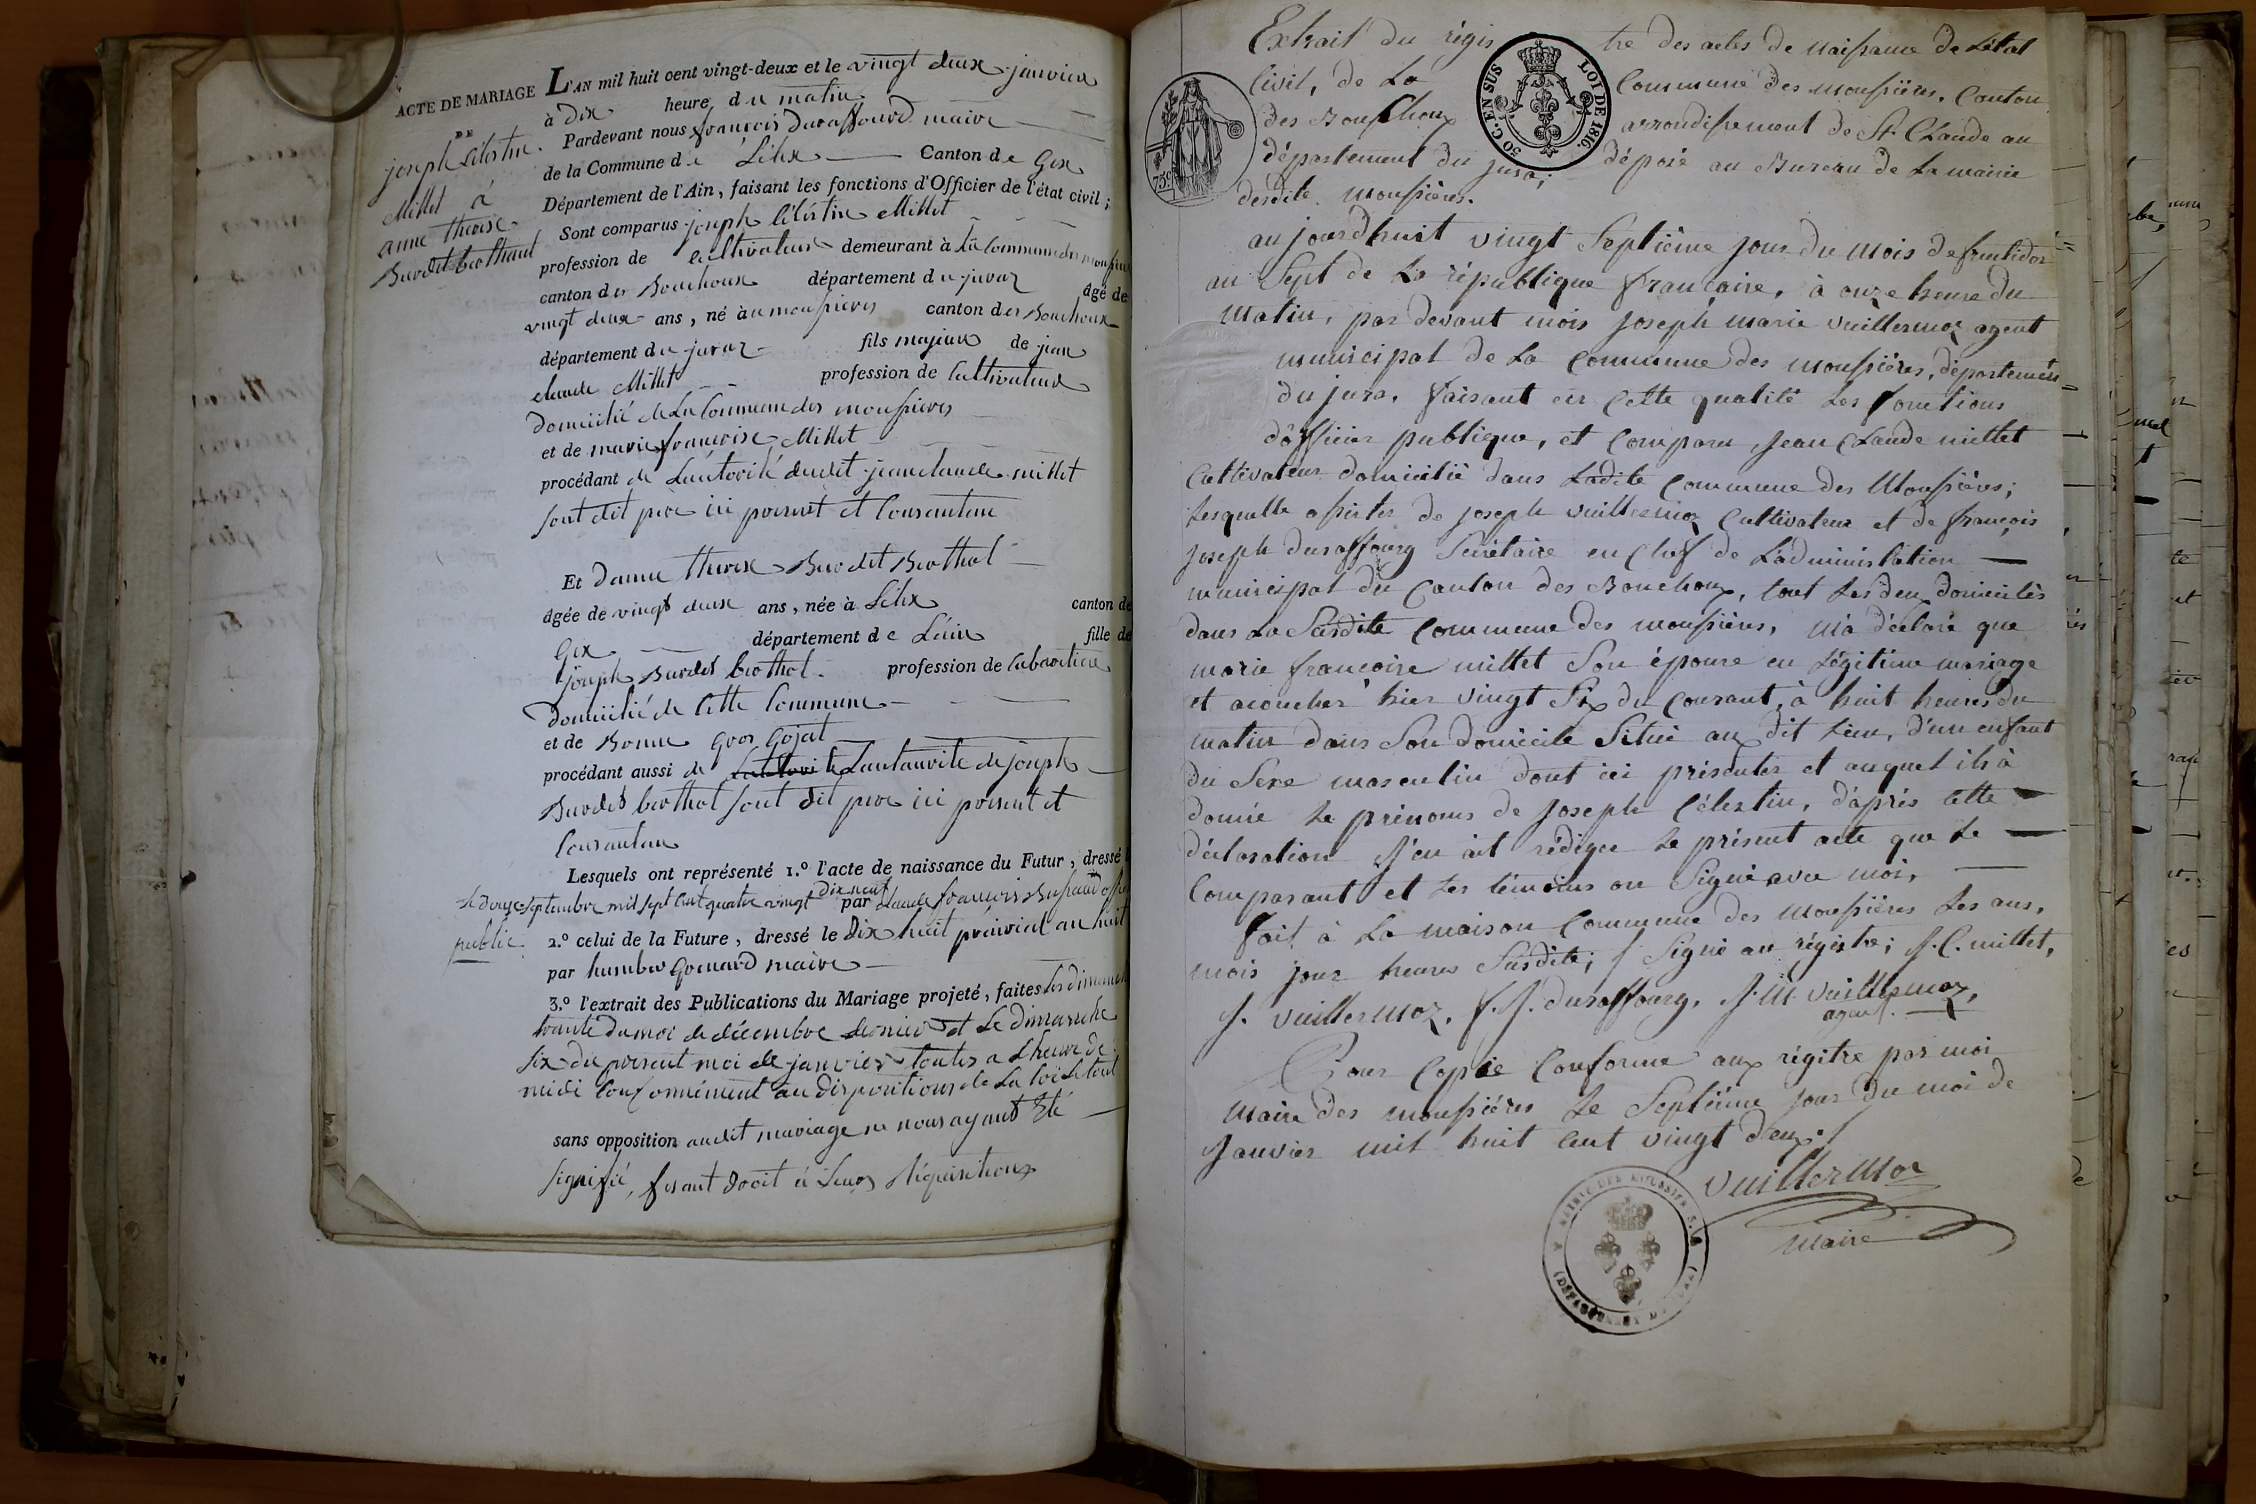 ACTE DE MARIAGE
DE
joseph Célestin
Millet à
anne therese
Burdet berthaud
L'AN mil huit cent vingt-deux et le vingt deux janvier
à dix heure du matin
Pardevant nous françois Duraffourd maire
de la Commune de Lélex Canton de Gex
Département de l'Ain, faisant les fonctions d'Officier de l'état civil;
Sont comparus joseph Célestin Millet
profession de cultivateur demeurant à la Commune des mouss
canton des Bouchoux département du juraz âgé de
vingt deux ans, né aux moussieres canton des Bouchoux
département du juraz fils majeur de jean
claude Millet profession de Cultivateur
domicilié de la Commune des moussieres
et de marie françoise Millet
procédant de Lautorité dudit jean claude millet
sont dit pere ici present et Consantan
Et danne therese Burdet Berthot
âgée de vingt deux ans, née à Lélex canton de
Gex département de L'ain fille de
joseph Burdet berthot profession de Cultivateur
Domicilié de Cette Commune
et de Bonne Gros Gojat
procédant aussi de Lautaurite de joseph
Burdet berthot sont dit pere ici present et
Consantan
Lesquels ont représenté 1.º l'acte de naissance du Futur, dressé
le douze septembre mil sept Cent quatre vingt Dix neuf par claude françois
public
2.º celui de la Future, dressé le Dix huit prairial an huit
par humber Grenard maire
3.º l'extrait des Publications du Mariage projeté, faites les dimanche
trante du moi de décembre dernier et le dimanche
six du present moi de janvier toutes a L'heure de
midi Conformément au dispositions de La loi le tout
sans opposition audit mariage ne nous ayant Eté
signifié, fesant droit à leurs Réquisitions
Extrait du régis tre des actes de Naissance de Létat
Civil, de La Commune des moussières, Canton
des Bouchoux arrondissement de St. Claude au
département du jura; déposé au Bureau de La mairie
desdite Moussières.
75 c.
50 C. EN SUS
LOI DE 1816.
aujourdhuit vingt Septième jour du Mois de fructidor
an Sept de La république française, à onze heure du
Matin, par devant mois joseph marie Vuillermoz agent
municipal de La Commune des moussières, départemen
du jura, faisant en Cette qualité Les fonctions
d'officier publique, et Comparu Jean Claude millet
Cultivateur domicilié dans Ladite Commune des Moussières;
Lesquelle assister de joseph Vuillermoz Cultivateur et de françois
joseph duraffourg Secrétaire en Chef de L'administation
municipal du Canton des Bouchoux, tout Les deux domiciliés
dans La Susdite Commune des moussières, M'a déclaré que
marie françoise millet Son épouse en Légitime mariage
et acoucher hier vingt Six du Courant, à huit heures du
matin dans Son domicile Situé au dit Lieu, d'un enfant
du Sexe masculin dont ici présenter et auquel ils à
donné Le prénoms de joseph Célestin, d'après Cette
déclaration J'en ait rédiger Le présent acte que Le
Comparant et Les témoins on Signé avec moi,
fait à La maison Commune des Moussières Les ans,
mois jour heures Susdite; Signé au régistre; J. C. millet,
J. Vuillermoz, f. J. duraffourg, J. M. Vuillermoz,
agent.
Pour Copie Conforme aux régitre par moi
Maire des moussières Le Septième jour du moi de
Janvier mil huit Cent vingt deux
Vuillermoz
Maire